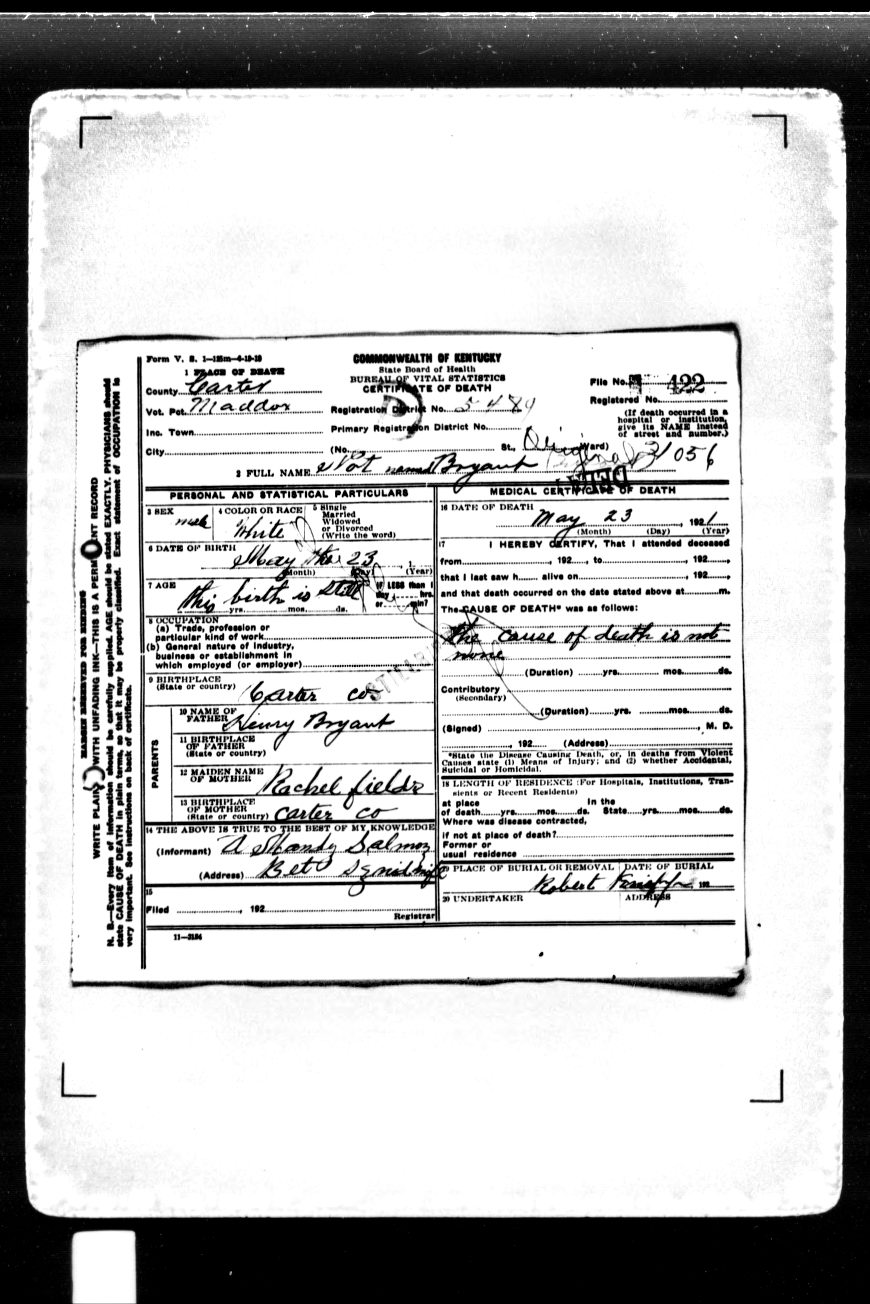 Form V. S. 1—125m—6-19-19
COMMONWEALTH OF KENTUCKY
State Board of Health
BUREAU OF VITAL STATISTICS
CERTIFICATE OF DEATH
1 PLACE OF DEATH
County Carter
Vot. Pct. Maddox
Inc. Town
City
Registration District No. 5489
Primary Registration District No.
(No. St., Ward)
File No. 422
Registered No.
(If death occurred in a
hospital or institution,
give its NAME instead
of street and number.)
31056
2 FULL NAME Not named Bryant
PERSONAL AND STATISTICAL PARTICULARS
3 SEX male
4 COLOR OR RACE White
5 Single
Married
Widowed
or Divorced
(Write the word)
6 DATE OF BIRTH
May the 23, 1
(Month) (Day) (Year)
7 AGE
this birth is still
yrs. mos. ds.
IF LESS than 1
day, hrs.
or min?
8 OCCUPATION
(a) Trade, profession or
particular kind of work
(b) General nature of industry,
business or establishment in
which employed (or employer)
STILLBIRTH
9 BIRTHPLACE
(State or country) Carter co
PARENTS
10 NAME OF
FATHER Henry Bryant
11 BIRTHPLACE
OF FATHER
(State or country)
12 MAIDEN NAME
OF MOTHER Rachel fields
13 BIRTHPLACE
OF MOTHER
(State or country) Carter co
14 THE ABOVE IS TRUE TO THE BEST OF MY KNOWLEDGE
(Informant)
(Address)
15
Filed , 192
Registrar
11—3184
MEDICAL CERTIFICATE OF DEATH
16 DATE OF DEATH
May 23, 1921
(Month) (Day) (Year)
17 I HEREBY CERTIFY, That I attended deceased
from , 192 , to , 192 ,
that I last saw h alive on , 192 ,
and that death occurred on the date stated above at m.
The CAUSE OF DEATH* was as follows:
the cause of death is not
none
(Duration) yrs. mos. ds.
Contributory
(Secondary)
(Duration) yrs. mos. ds.
(Signed) , M. D.
, 192 (Address)
*State the Disease Causing Death, or, in deaths from Violent
Causes state (1) Means of Injury; and (2) whether Accidental,
Suicidal or Homicidal.
18 LENGTH OF RESIDENCE (For Hospitals, Institutions, Tran-
sients or Recent Residents)
at place In the
of death yrs. mos. ds. State yrs. mos. ds.
Where was disease contracted,
if not at place of death?
Former or
usual residence
19 PLACE OF BURIAL OR REMOVAL DATE OF BURIAL
Robert 192
20 UNDERTAKER ADDRESS
MARGIN RESERVED FOR BINDING
WRITE PLAINLY WITH UNFADING INK—THIS IS A PERMANENT RECORD
N. B.—Every item of information should be carefully supplied. AGE should be stated EXACTLY. PHYSICIANS should
state CAUSE OF DEATH in plain terms, so that it may be properly classified. Exact statement of OCCUPATION is
very important. See instructions on back of certificate.